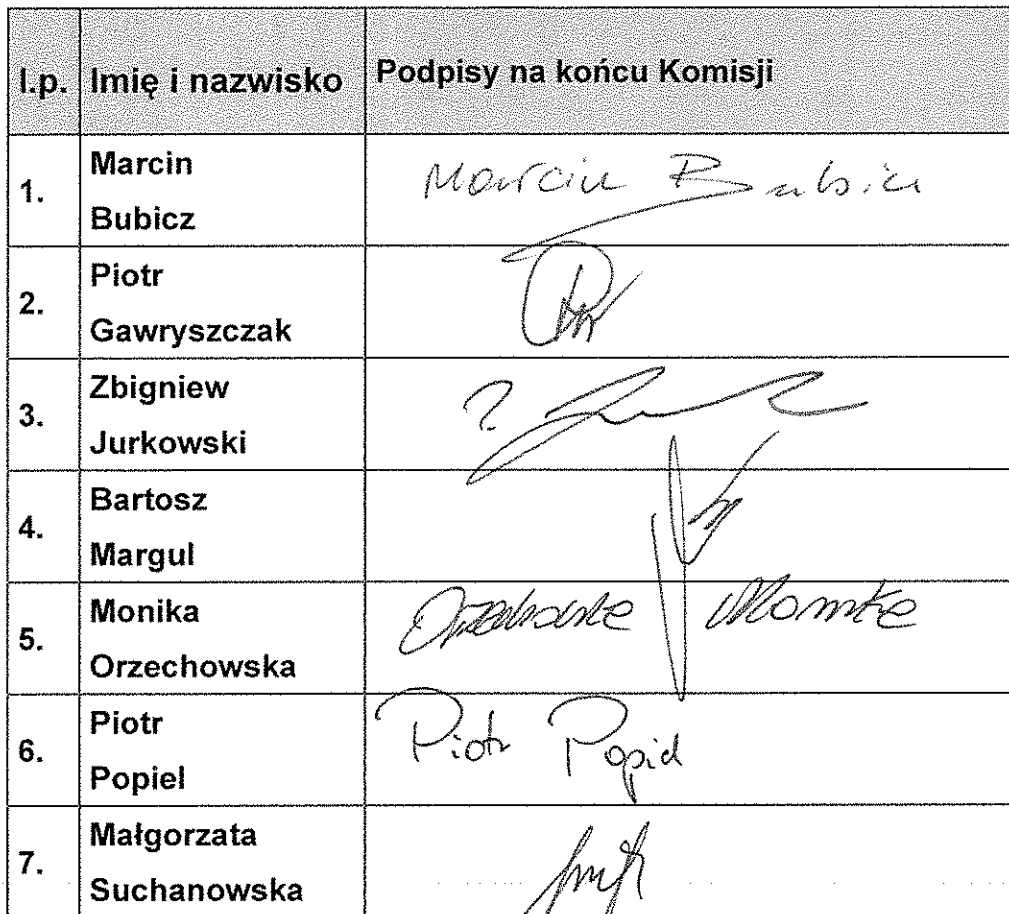 l.p. Imię i nazwisko Podpisy na końcu Komisji
1. Marcin Bubicz Marcin Bubicz
2. Piotr Gawryszczak
3. Zbigniew Jurkowski
4. Bartosz Margul
5. Monika Orzechowska Orzechowska Monika
6. Piotr Popiel Piotr Popiel
7. Małgorzata Suchanowska